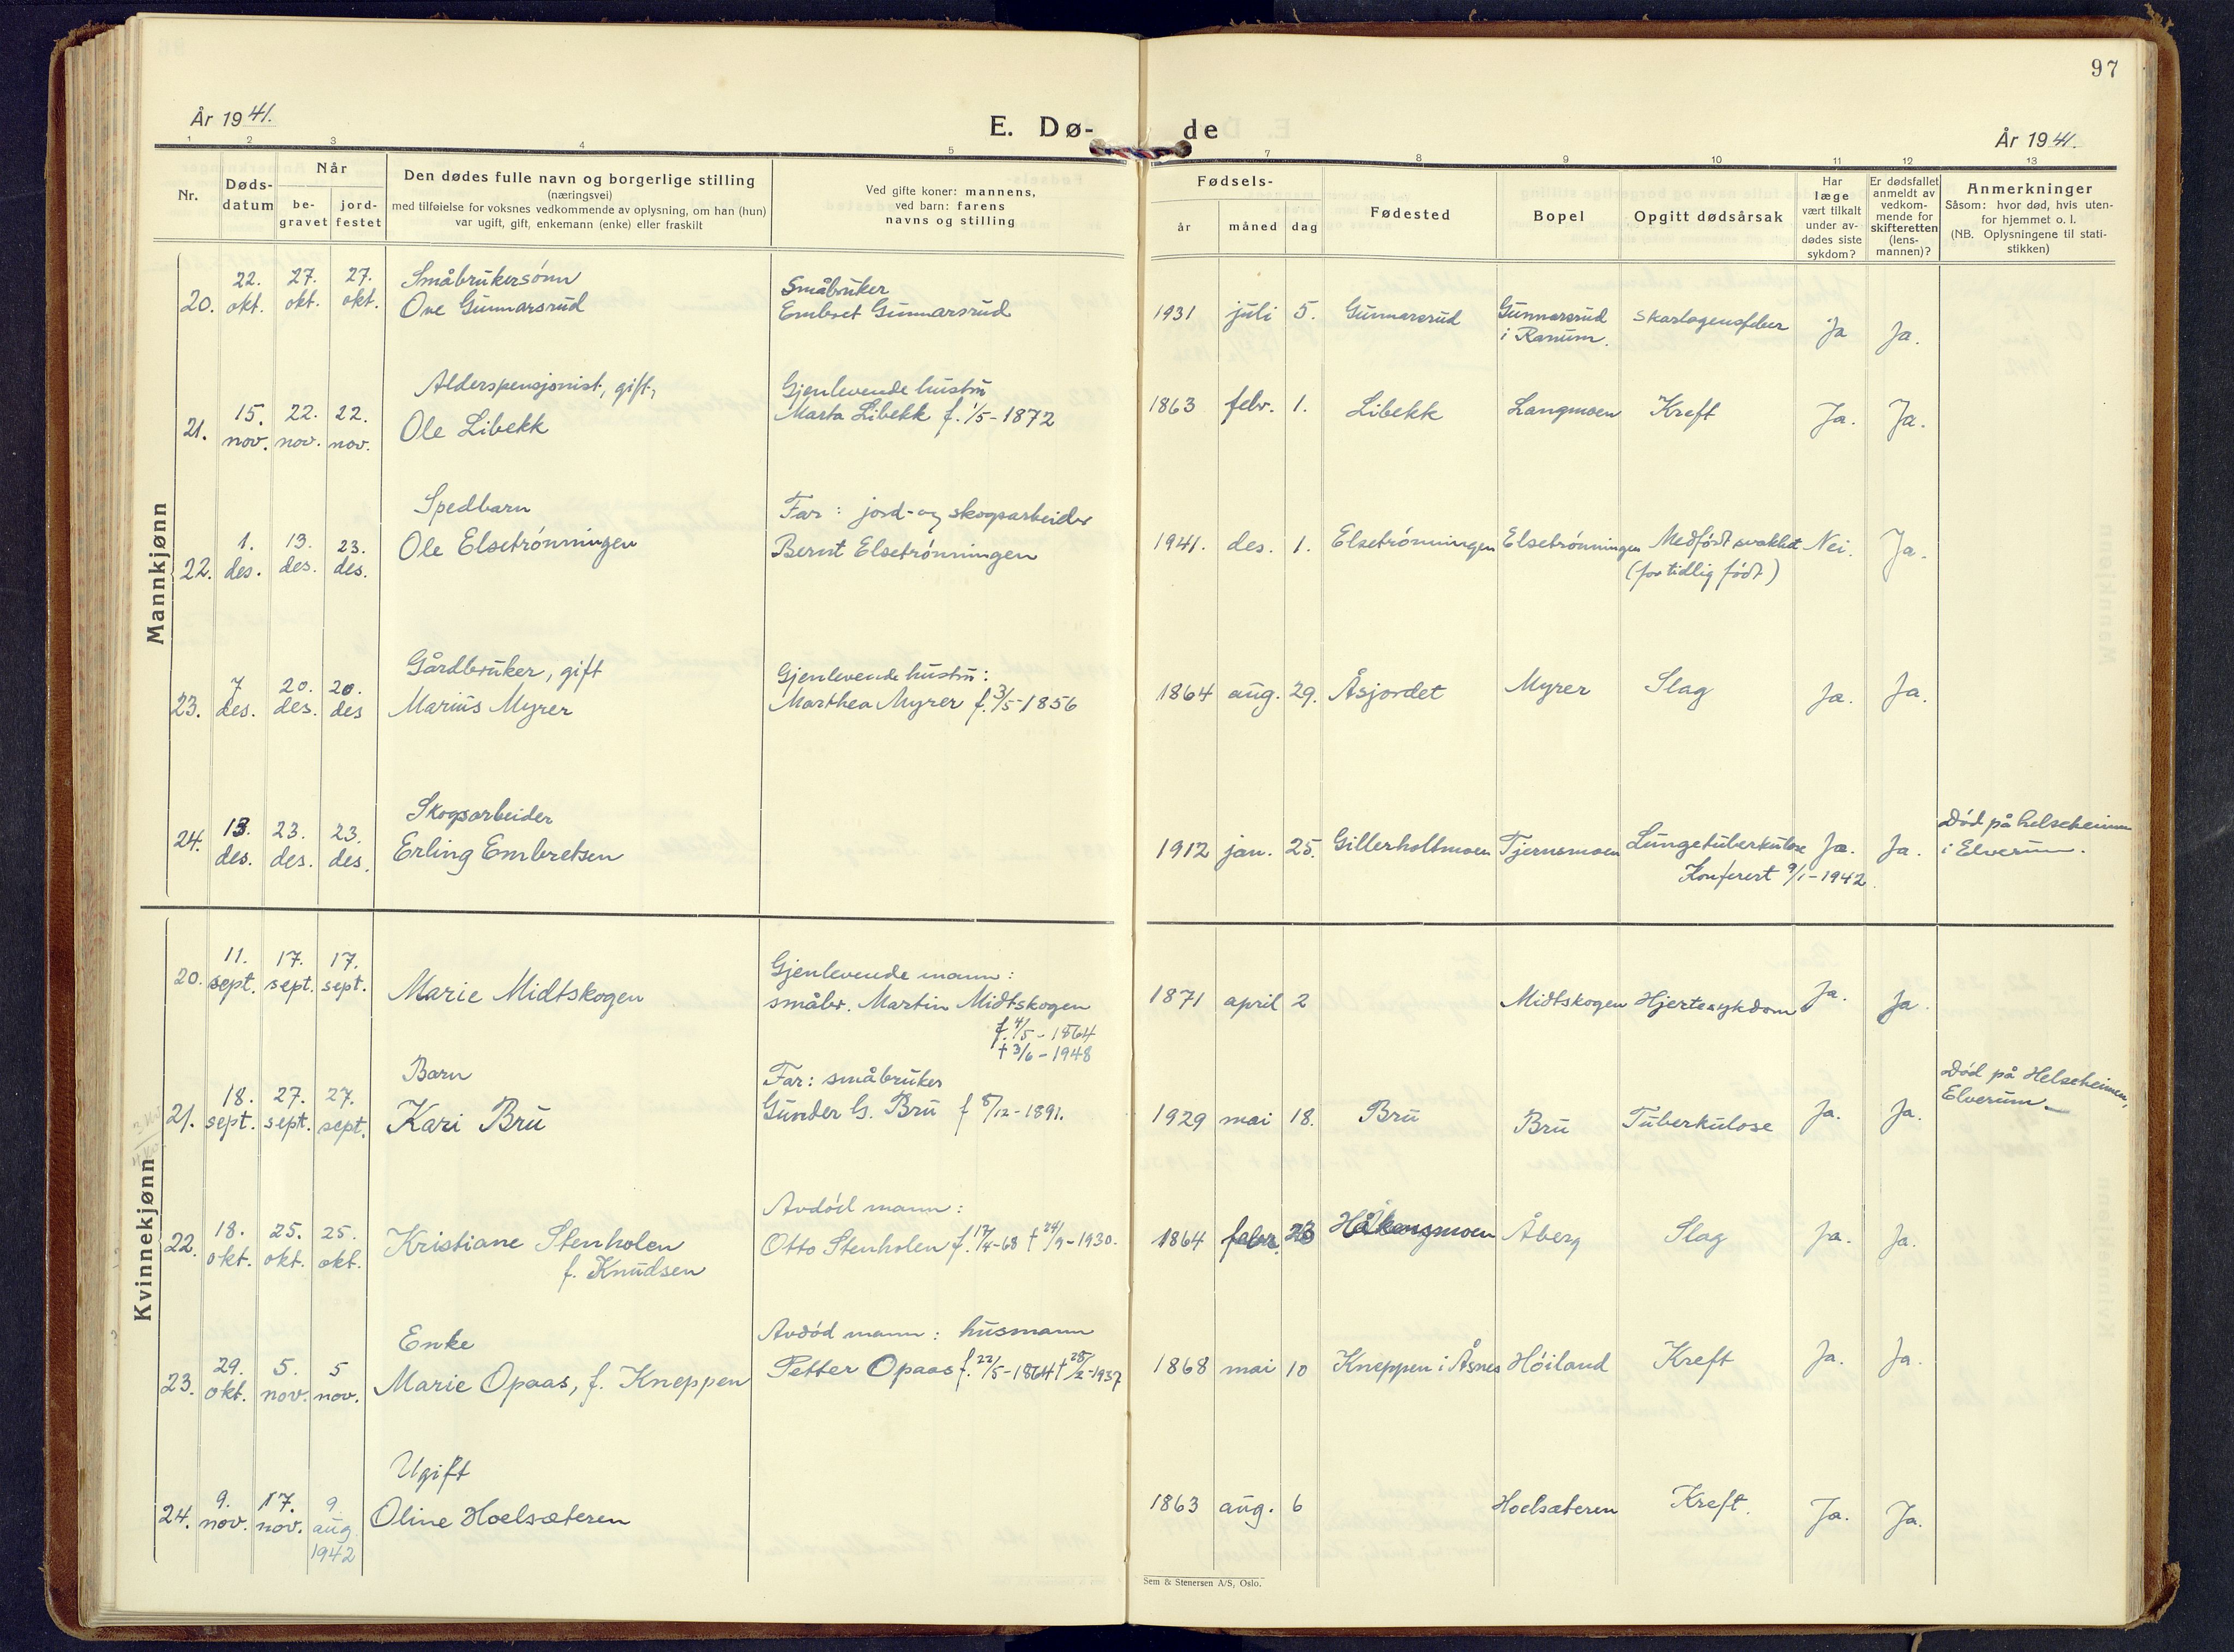 97
År 1941.
E. Dø-
de
År 1941.
1 2 3 4 5 7 8 9 10 11 12 13
Nr.
Døds-
datum
Når
be-
gravet
jord-
festet
Den dødes fulle navn og borgerlige stilling
(næringsvei)
med tilføielse for voksnes vedkommende av oplysning, om han (hun)
var ugift, gift, enkemann (enke) eller fraskilt
Ved gifte koner: mannens,
ved barn: farens
navns og stilling
Fødsels-
år måned dag
Fødested
Bopel
Opgitt dødsårsak
Har
læge
vært tilkalt
under av-
dødes siste
sykdom?
Er dødsfallet
anmeldt av
vedkom-
mende for
skifteretten
(lens-
mannen)?
Anmerkninger
Såsom: hvor død, hvis uten-
for hjemmet o. l.
(NB. Oplysningene til stati-
stikken)
Mannkjønn
22. 27. 27. Småbrukersønn Småbruker
20. okt. okt. okt. Ove Gunnarsrud Embret Gunnarsrud 1931 juli 5. Gunnarsrud Gunnarsrud skarlagensfeber Ja Ja.
i Ranum.
Alderspensjonist, gift, Gjenlevende hustru
15. 22. 22. Marta Libekk f. 1/5-1872 1863 febr. 1. Libekk Langmoen Kreft Ja. Ja.
21. nov. nov. nov. Ole Libekk
Spedbarn Far: jord- og skogsarbeider
1. 13. 23. Ole Elsetrønningen Bernt Elsetrønningen 1941. des. 1. Elsetrønningen Elsetrønningen Medfødt svakhet Nei. Ja.
22. des. des. des. (for tidlig født)
Gårdbruker, gift Gjenlevende hustru:
7 20. 20.
23. des. des. des Marius Myrer Marthea Myrer f. 3/5-1856 1864 aug. 29. Åsjordet Myrer Slag Ja. Ja.
Skogsarbeider Død på helseheimen
24. 13. 23. 23. i Elverum.
des. des. des. Erling Embretsen 1912 jan. 25. Gillerholtmoen Tjernsmoen Lungetuberkulose Ja. Ja.
Konferert 9/1-1942.
Kvinnekjønn
11. 17. 17. Gjenlevende mann:
20. sept. sept. sept. Marie Midtskogen småbr. Martin Midtskogen 1871 april 2 Midtskogen Hjertesykdom Ja. Ja.
f. 4/5-1864
† 3/6-1948
Barn Far: småbruker Død på Helseheimen,
18. 27. 27. Elverum.
21. sept. sept. sept. Kari Bru Gunder G. Bru f 8/12-1891. 1929 mai 18. Bru Bru Tuberkulose Ja. Ja.
Avdød mann:
18. 25. 25.
22. okt. okt. okt. Kristiane Stenholen Otto Stenholen f. 17/4-68 † 24/9-1930. 1864 febr. 23 Håkengmoen Åberg Slag Ja. Ja.
f. Knudsen
Enke Avdød mann: husmann
29. 5. 5
23. okt. nov. nov. Marie Opaas, f. Kneppen Petter Opaas f. 22/5-1864 † 28/2-1937 1868 mai 10 Kneppen i Åsnes Höiland Kreft Ja. Ja.
Ugift
9. 17. 9.
24. nov. nov. aug. Oline Hoelsæteren 1863 aug. 6 Hoelsæteren Kreft. Ja. Ja.
1942
Sem & Stenersen A/S, Oslo.